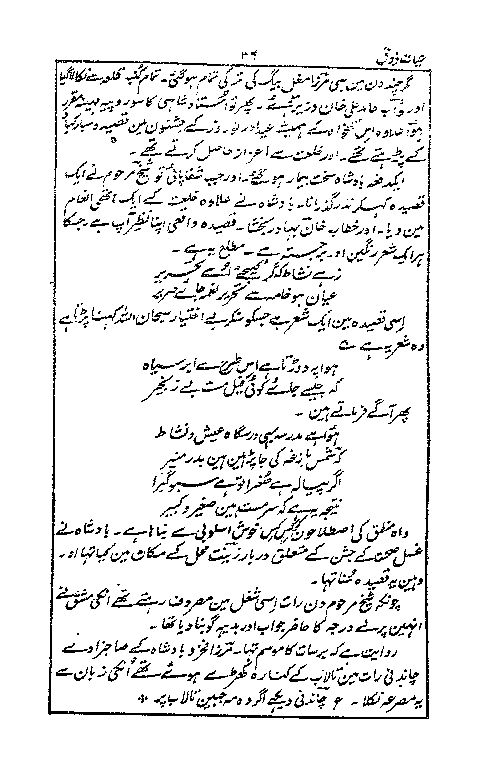 حیات ذوق ۳۴
گر چند دن مین ہی مرزا مغل بیگ کی ترکی تمام ہو گئی - تمام کنبہ قلعہ سے نکالا گیا
اور نواب حامد علی خان وزیر ہوئے - پھر تو استاد شاہی کا سو روپیہ مہینہ مقرر
ہوا علاوہ اس تنخواہ کے ہمیشہ عید اور نوروز کے جشنون مین قصیدہ مبارکباد
کے پڑھتے تھے - اور خلعت سے اعزاز حاصل کرتے تھے -
ایک دفعہ بادشاہ سخت بیمار ہو گئے - اور جب شفا پائی تو شیخ مرحوم نے ایک
قصیدہ کہکر نذر گذرانا - بادشاہ نے علاوہ خلعت کے ایک ہاتھی انعام
مین دیا - اور خطاب خان بہادر بخشا - قصیدہ واقعی اپنا نظیر آپ ہے جسکا
ہر ایک شعر رنگین اور برجستہ ہے - مطلع یہ ہے -
زہے نشاط کہ گر کیجیے اسے تحریر
عیان ہو خامہ سے تحریر نغمہ جائے صریر
اسی قصیدہ مین ایک شعر ہے جسکو سنکر بے اختیار سبحان اللہ کہنا پڑتا ہے
وہ شعر یہ ہے
ہوا پہ دوڑتا ہے اس طرح سے ابر سیاہ
کہ جیسے جائے کوئی فیل مست بے زنجیر
پھر آگے فرماتے ہین -
ہوا ہے مدرسہ بھی درسگاہ عیش و نشاط
کہ شمس بازغہ کی جا پڑھین ہین بدر منیر
اگر پیالہ ہے صغرا تو ہے سبو کبرا
نتیجہ یہ ہے کہ سرمست ہین صغیر و کبیر
واہ منطق کی اصطلاحون کو کس خوش اسلوبی سے نباہا ہے - بادشاہ نے
غسل صحت کے جشن کے متعلق دربار زینت محل کے مکان مین کیا تہا اور
وہین یہ قصیدہ سنا تہا -
چونکہ شیخ مرحوم دن رات اسی شغل مین مصروف رہتے تھے انکی مشق نے
انہین پرلے درجہ کا حاضر جواب اور بدیہہ گو بنا دیا تھا -
روایت ہے کہ برسات کا موسم تہا - مرزا فخرو بادشاہ کے صاحبزادے
چاندنی رات مین تالاب کے کنارہ کھڑے ہوئے تھے انکی زبان سے
یہ مصرعہ نکلا - ع چاندنی دیکھے اگر وہ مہ جبین تالاب پر *